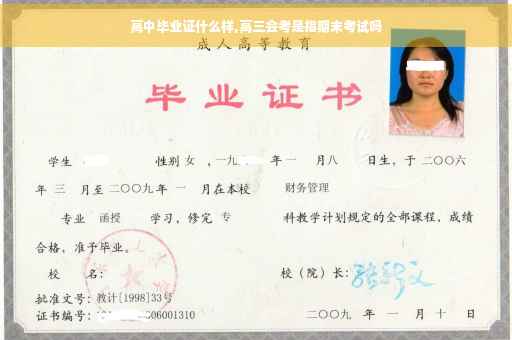 高中毕业证什么样,高三会考是指期末考试吗
成人高等教育
毕业证书
学生 性别 女 ,一九 年 一 月八 日生，于二〇〇六
年 三 月至二〇〇九年 一 月在本校 财务管理
专业 函授 学习，修完 专 科教学计划规定的全部课程，成绩
合格，准予毕业。
校 名： 校（院）长：
批准文号：教计[1998]33号
证书编号： 006001310 二〇〇九 年 一 月 十 日